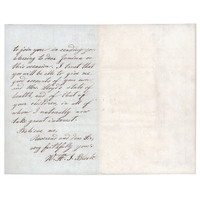 to join you in sending you
blessing to dear Jemima on
this occasion. I trust that
you will be able to give me
good accounts of your own
and Mrs. Lloyd's state of
health, and of that of
your children, in all of
whom I naturally now
take great interest.
Believe me,
Reverend and dear Sir
very faithfully yours